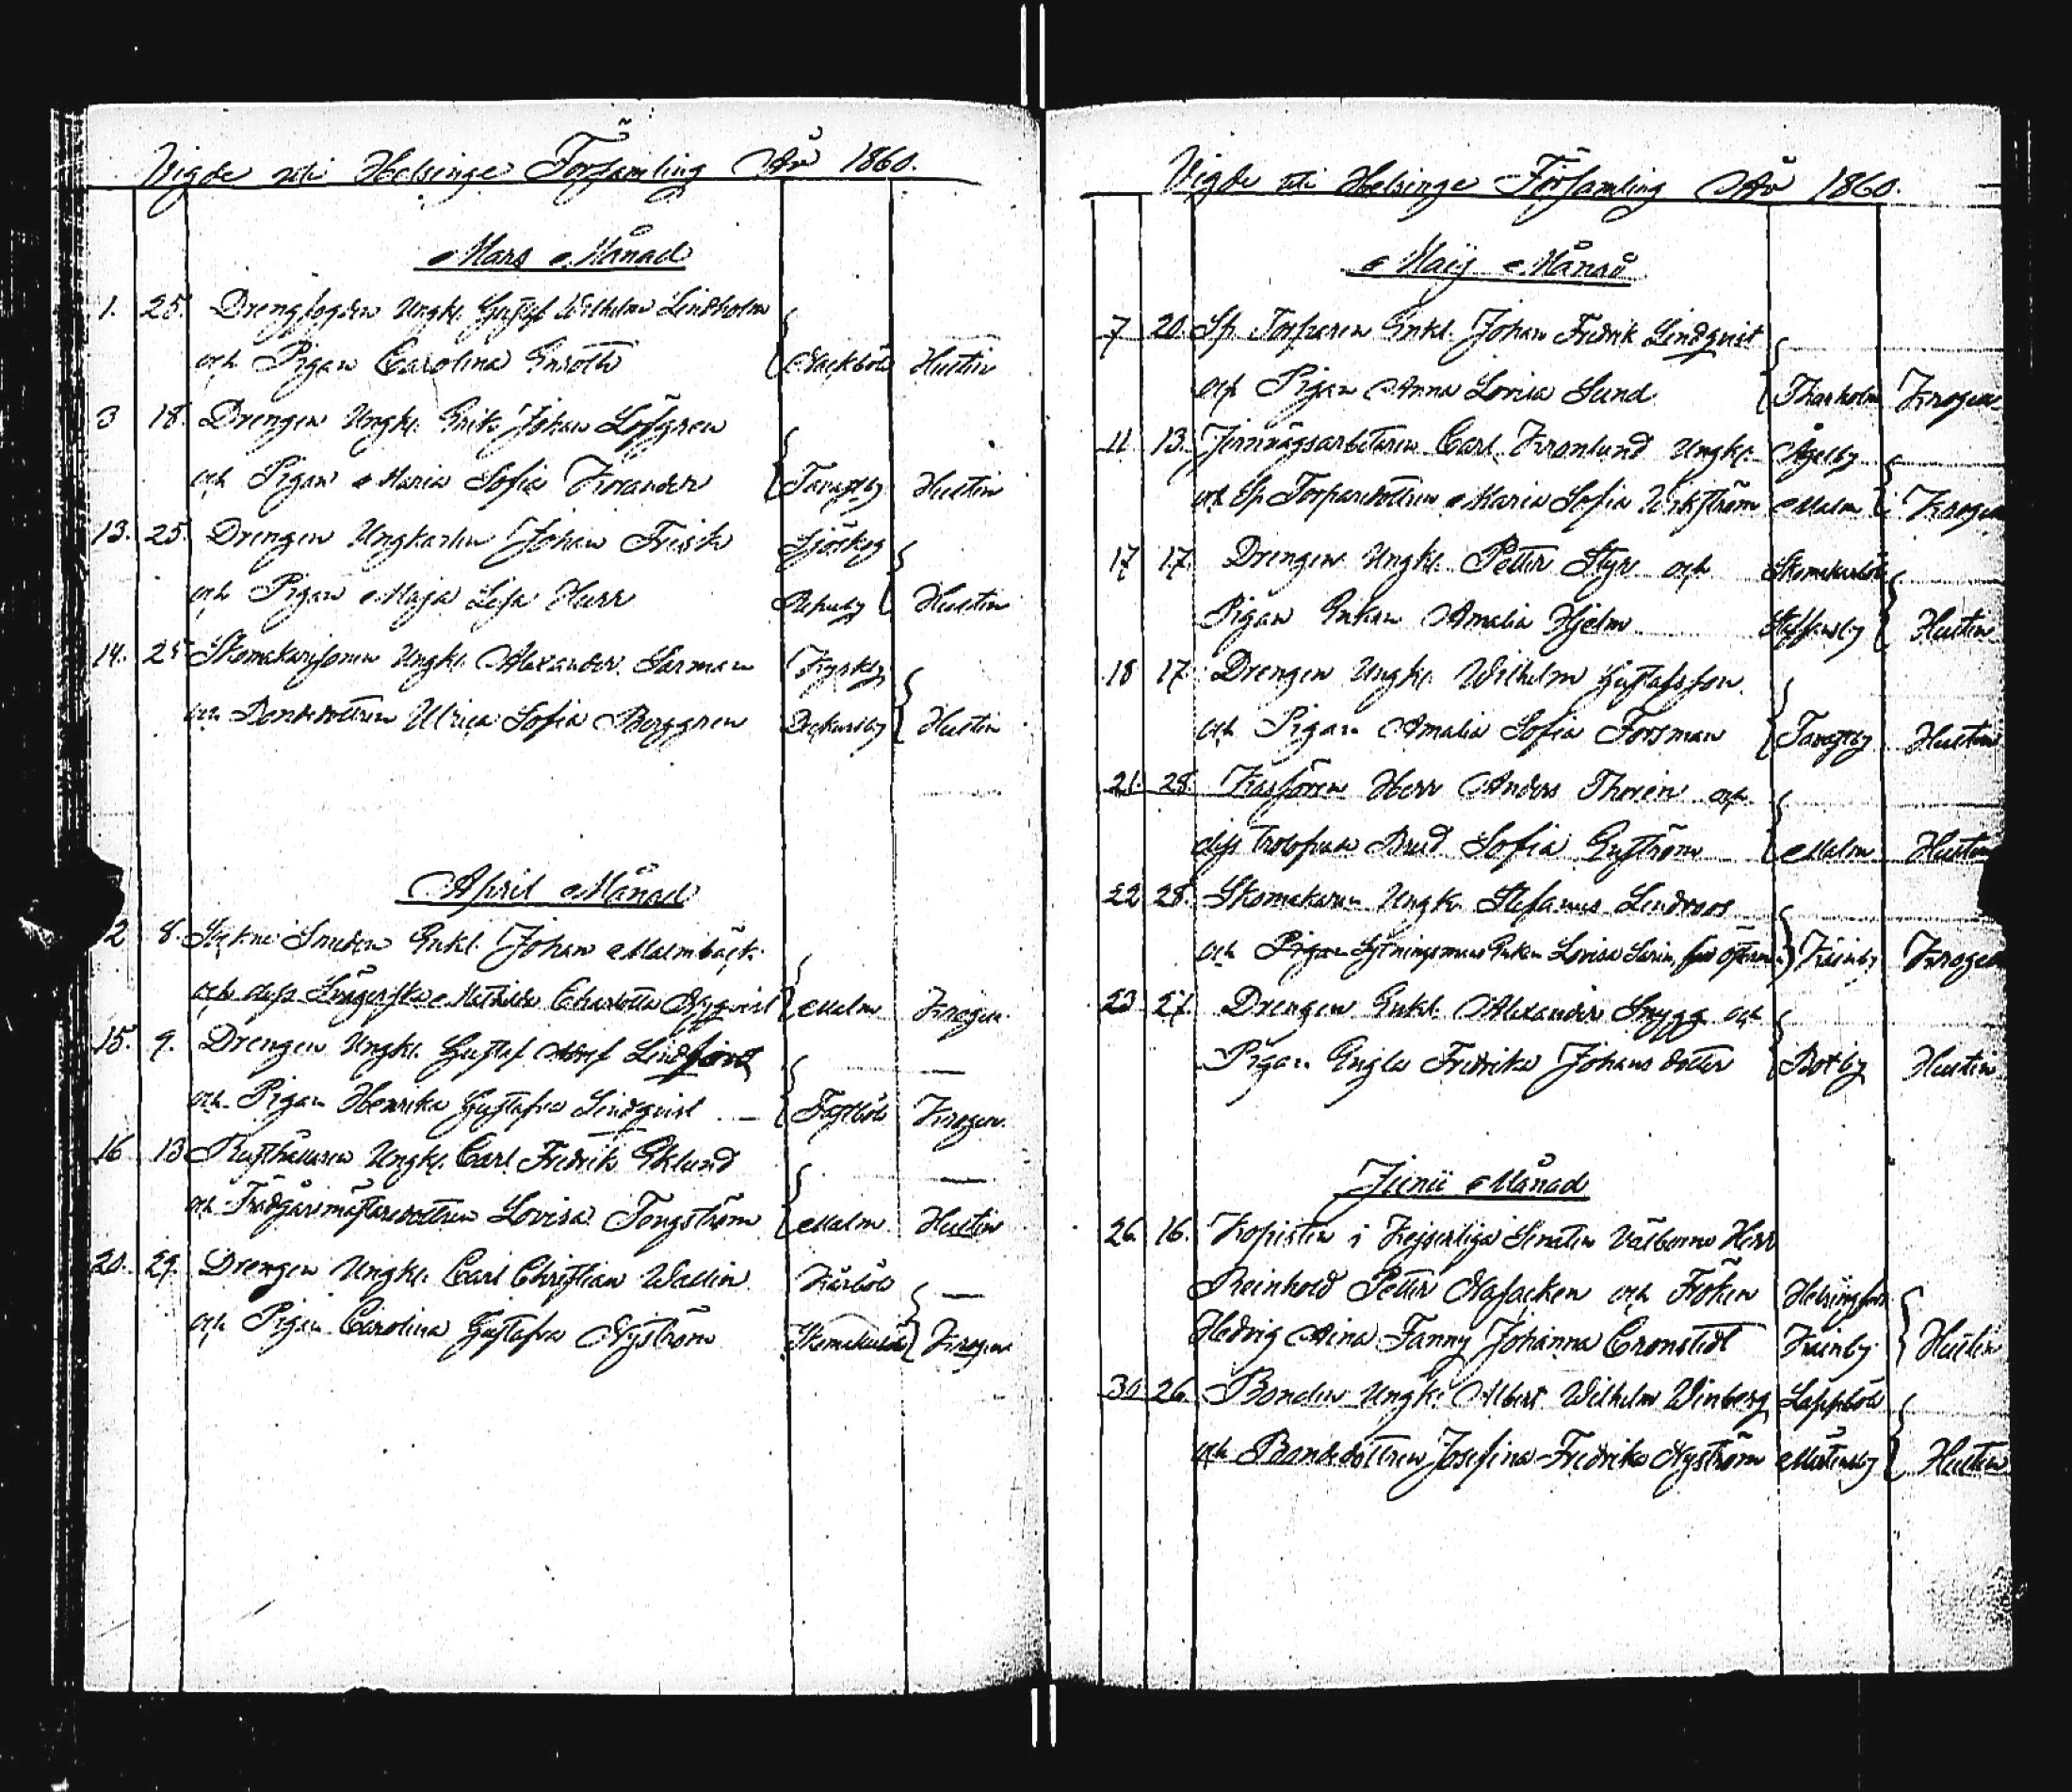 Vigde uti Helsinge Församling År 1860.
Mars Månad
1. 25. Drengfogden Ungk. Gustaf Wilhelm Lindholm
och Pigan Carolina Enroth Nackböle Hustin
3 18. Drengen Ungk. Erik Johan Löfgren
och Pigan Maria Sofia Korander Tavastby Hustin
13. 25. Drengen Ungkarlen Johan Frisk Sjöskog
och Pigan Maja Lisa Hurr Hustin
14. 25 Skomakarsonen Ungk. Alexander Sarman Kyrkby
och Bondedottren Ulrica Sofia Berggren Dickursby Hustin
April Månad
2 8. Sockne Smeden Enkl. Johan Malmbäck
och dess Svägerska Mathilda Charlotta Nyqvist Malm Krogen
15. 9. Drengen Ungk. Gustaf Adolf Lindfors
och Pigan Henrika Gustafva Lindqvist Fastböle Krogen.
16 13 Rusthållaren Ungk. Carl Fredrik Eklund
och Trädgårsmästaredottren Lovisa Tengström Malm Hustin
20. 29. Drengen Ungk. Carl Christian Wallin Kårböle
och Pigan Carolina Gustafva Nyström Skomakarböle Krogen
Vigde uti Helsinge Församling År 1860.
Maij Månad
7 20. Sp. Torparen Enkl. Johan Fredrik Lindqvist
och Pigan Anna Lovisa Sund Krogen
11 13. Jernvägsarbetaren Carl Kronlund Ungk. Ågelby
och Sp. Torparedottren Maria Sofia Wikström Malm Krogen
17 17. Drengen Ungk. Petter Styf och Skomakarböle
Pigan Enkan Amalia Hjelm Staffansby Hustin
18 17. Drengen Ungk. Wilhelm Gustafsson
och Pigan Amalia Sofia Forsman Tavastby Hustin
21. 28. Kassören Herr Anders Thorén och
dess trolofvade Brud Sofia Enström Malm Hustin
22 28. Skomakaren Ungk. Stefanus Lindroos
och Pigan Sytningsmans Enkan Lovisa Sarin, född Österman Krogen
23 27. Drengen Enkl. Alexander Snygg och
Pigan Engla Fredrika Johansdotter Botby Hustin
Junii Månad
26. 16. Kopisten i Kejserliga Senaten Välborne Herr
Reinhold Petter och Fröken Helsingfors
Hedvig Aina Fanny Johanna Cronstedt Hustin
30. 26. Bonden Ungk. Albert Wilhelm Winberg Lappböle
och Bondedottren Josefina Fredrika Nyström Mårtensby Hustin